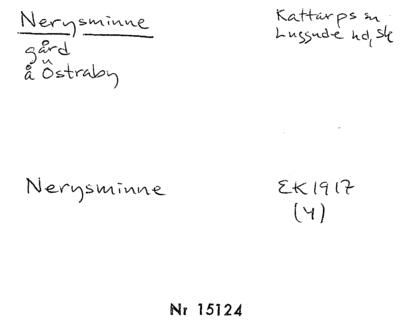 Nerysminne
Kattarps sn
gård
Luggude hd, Sk
å Östraby
Nerysminne
EK 1917
(4)
Nr 15124